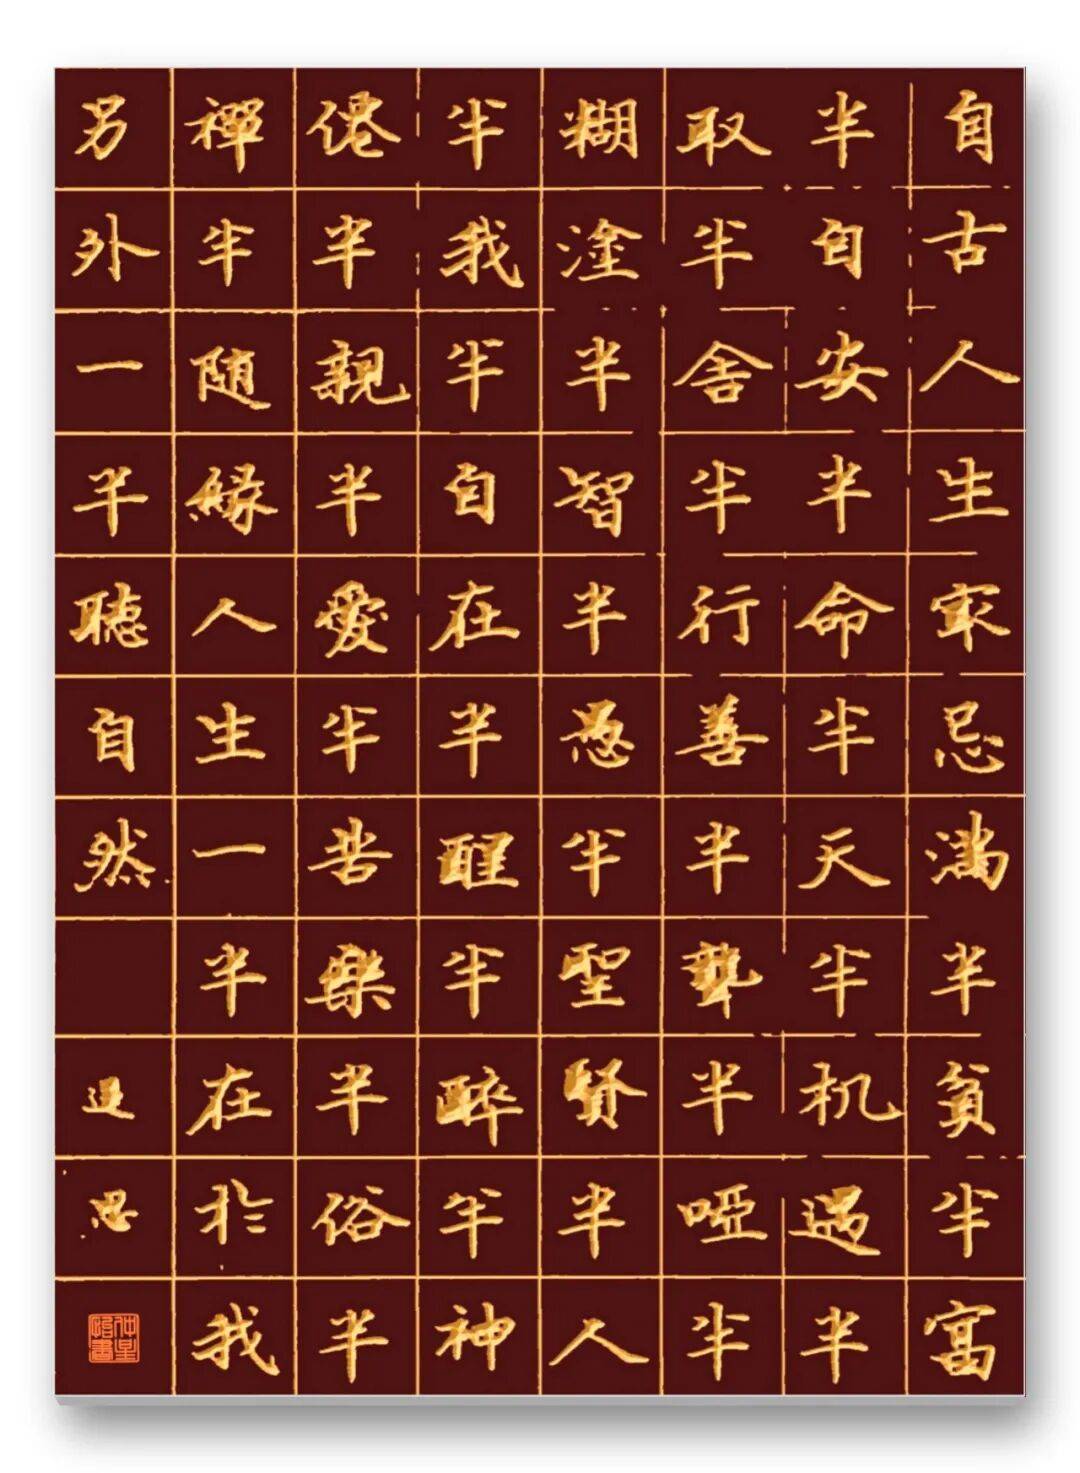 自古人生最忌滿半貧半富
半自安半命半天半机遇半
取半舍半行善半聾半啞半
糊塗半智半愚半聖賢半人
半我半自在半醒半醉半神
僊半親半愛半苦樂半俗半
禪半随緣人生一半在於我
另外一半聽自然